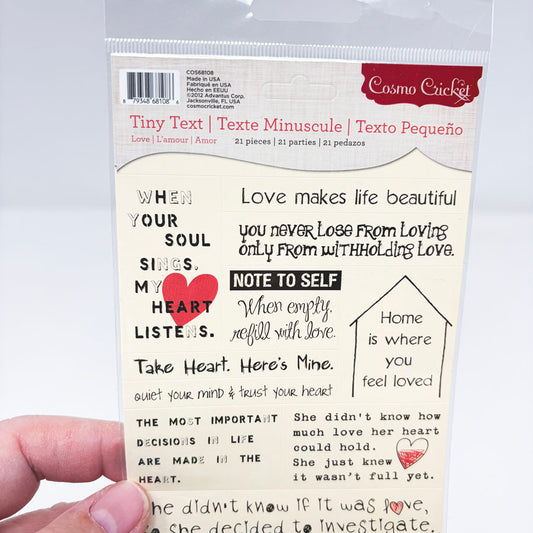 COS68108
Made in USA
Fabriqué en USA
Hecho en EEUU
©2012 Advantus Corp.
Jacksonville, FL USA
cosmocricket.com
8 79348 68108 6
Cosmo Cricket
Tiny Text | Texte Minuscule | Texto Pequeño
Love | L'amour | Amor
21 pieces | 21 parties | 21 pedazos
WHEN
YOUR
SOUL
SINGS.
MY
HEART
LISTENS.
Love makes life beautiful
you never lose from loving
only from withholding love.
NOTE TO SELF
When empty,
refill with love.
Home
is where
you
feel loved
Take Heart. Here's Mine.
quiet your mind & trust your heart
THE MOST IMPORTANT
DECISIONS IN LIFE
ARE MADE IN THE
HEART.
She didn't know how
much love her heart
could hold.
She just knew
it wasn't full yet.
he didn't know if it was love,
she decided to investigate.